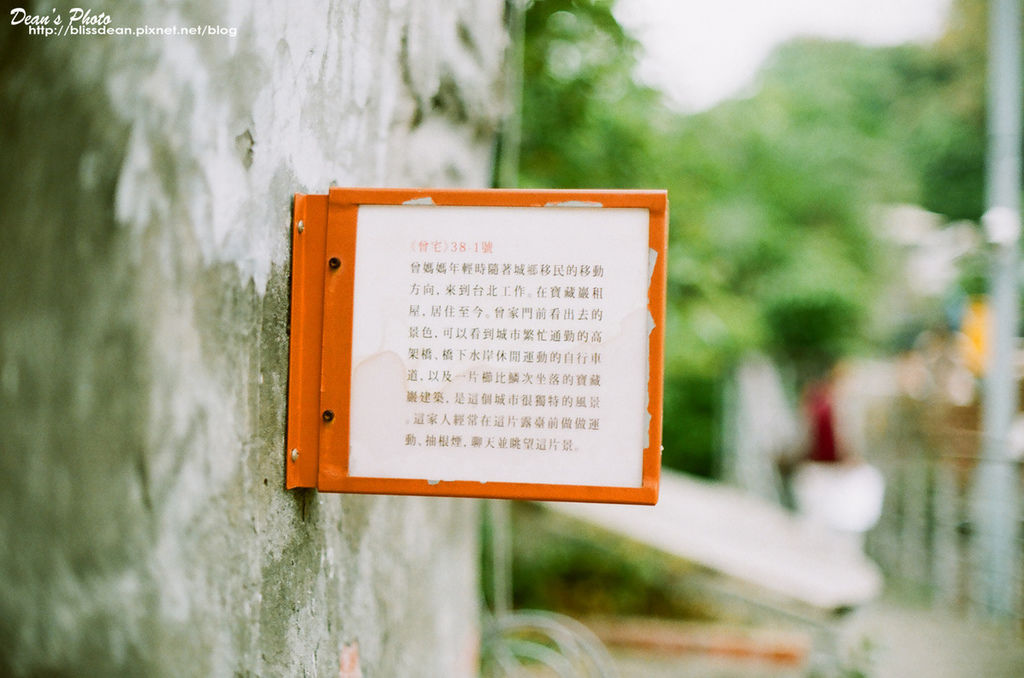 Dean's Photo
http://blissdean.pixnet.net/blog
《曾宅》38-1號
曾媽媽年輕時隨著城鄉移民的移動
方向，來到台北工作。在寶藏巖租
屋，居住至今。曾家門前看出去的
景色，可以看到城市繁忙通勤的高
架橋、橋下水岸休閒運動的自行車
道，以及一片櫛比鱗次坐落的寶藏
巖建築，是這個城市很獨特的風景
。這家人經常在這片露臺前做做運
動、抽根煙，聊天並眺望這片景。